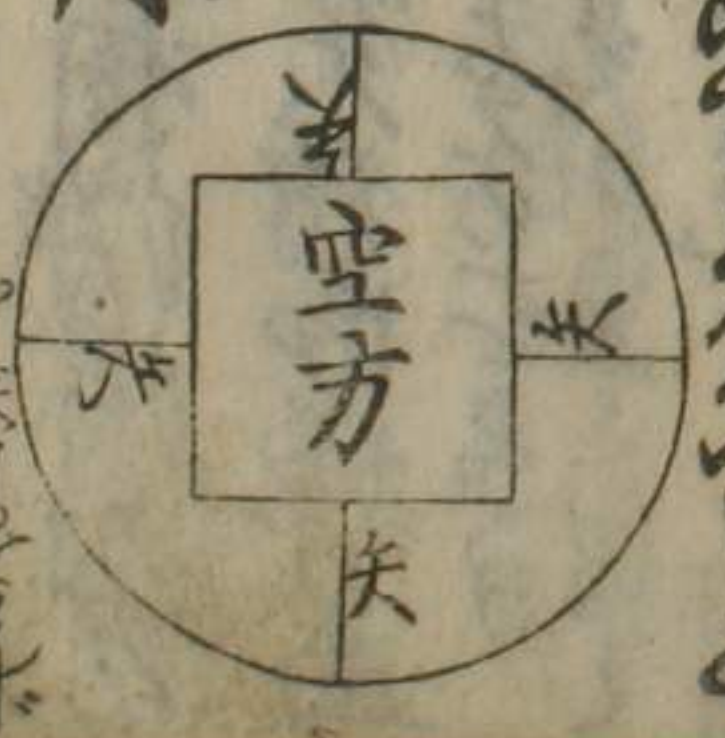 矢
空方
矢
矢
矢